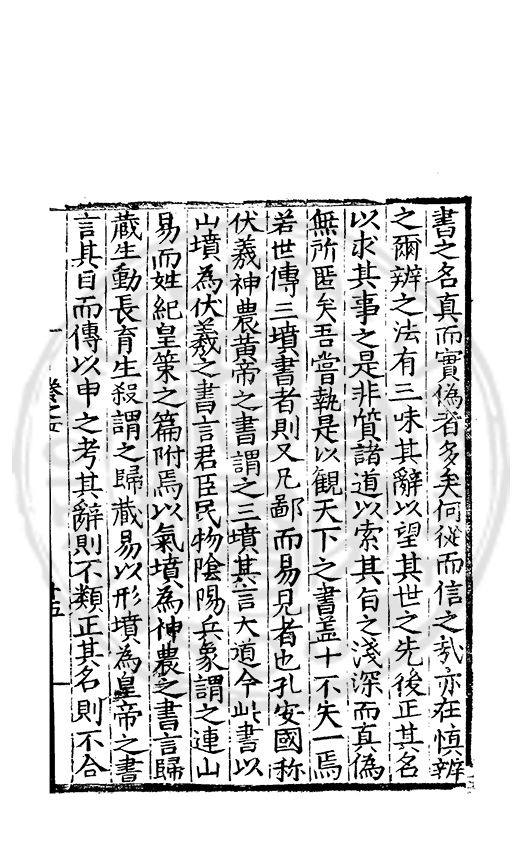 書之名真而實偽者多矣何從而信之㢤亦在慎辨
之爾辨之法有三味其辭以望其世之先後正其名
以求其事之是非質諸道以索其旨之淺深而真偽
無所匿矣吾嘗執是以觀天下之書盖十不失一焉
若世傳三墳書者則又凡鄙而易見者也孔安國称
伏羲神農黃帝之書謂之三墳其言大道今此書以
山墳為伏羲之書言君臣民物陰陽兵象謂之連山
易而姓紀皇策之篇附焉以氣墳為神農之書言歸
藏生動長育生殺謂之歸藏易以形墳為皇帝之書
言其目而傳以申之考其辭則不類正其名則不合
卷之五
廿五